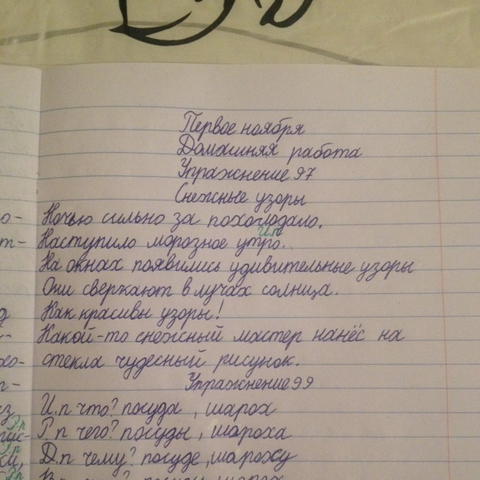 Первое ноября
Домашняя работа
Упражнение 97
Снежные узоры
о- Ночью сильно за похолодало.
И.п
т- Наступило морозное утро.
На окнах появились удивительные узоры
Они сверкают в лучах солнца.
Как красивы узоры!
Какой-то снежный мастер нанёс на
хо- стекла чудесный рисунок.
Упражнение 99
И.п что? посуда, шарох
Р.п чего? посуды, шароха
Д.п чему? посуде, шароху